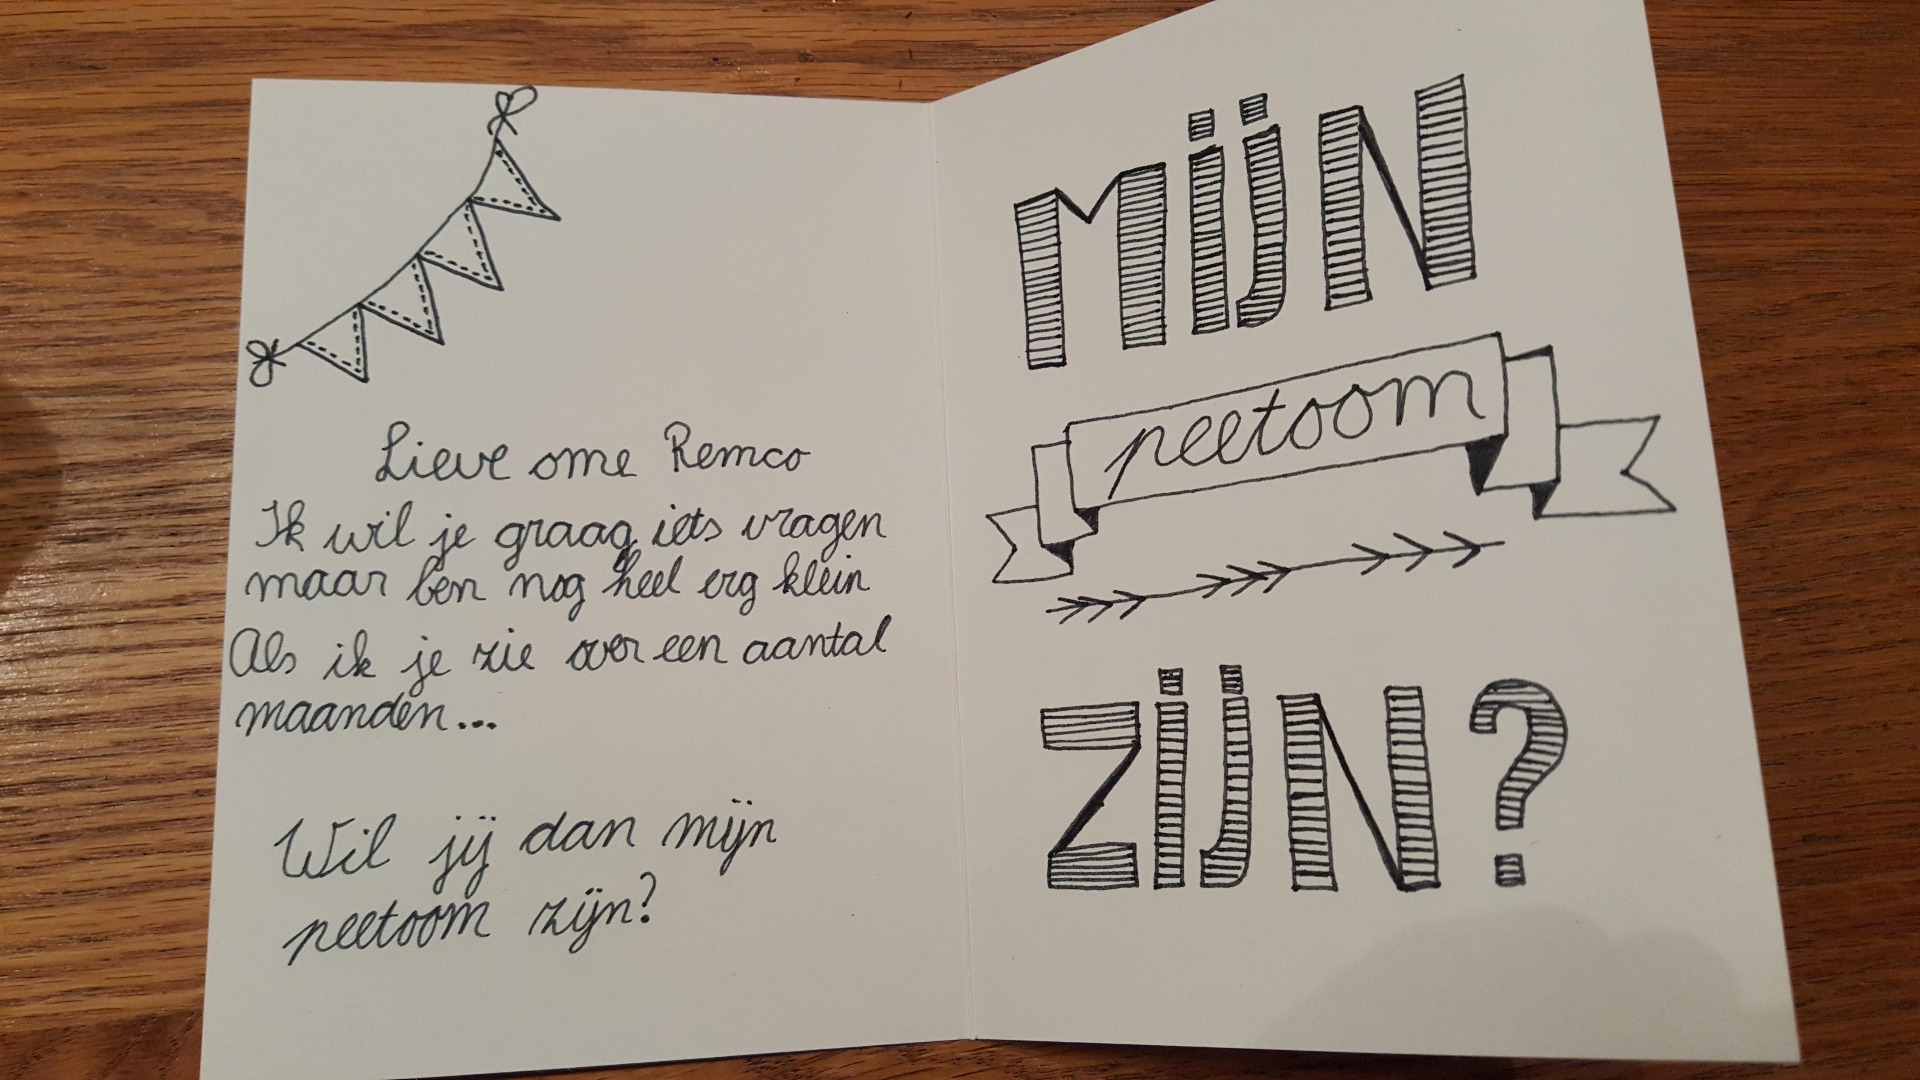 Lieve ome Remco
Ik wil je graag iets vragen
maar ben nog heel erg klein
Als ik je zie over een aantal
maanden...
Wil jij dan mijn
peetoom zijn?
MIJN
peetoom
ZIJN?